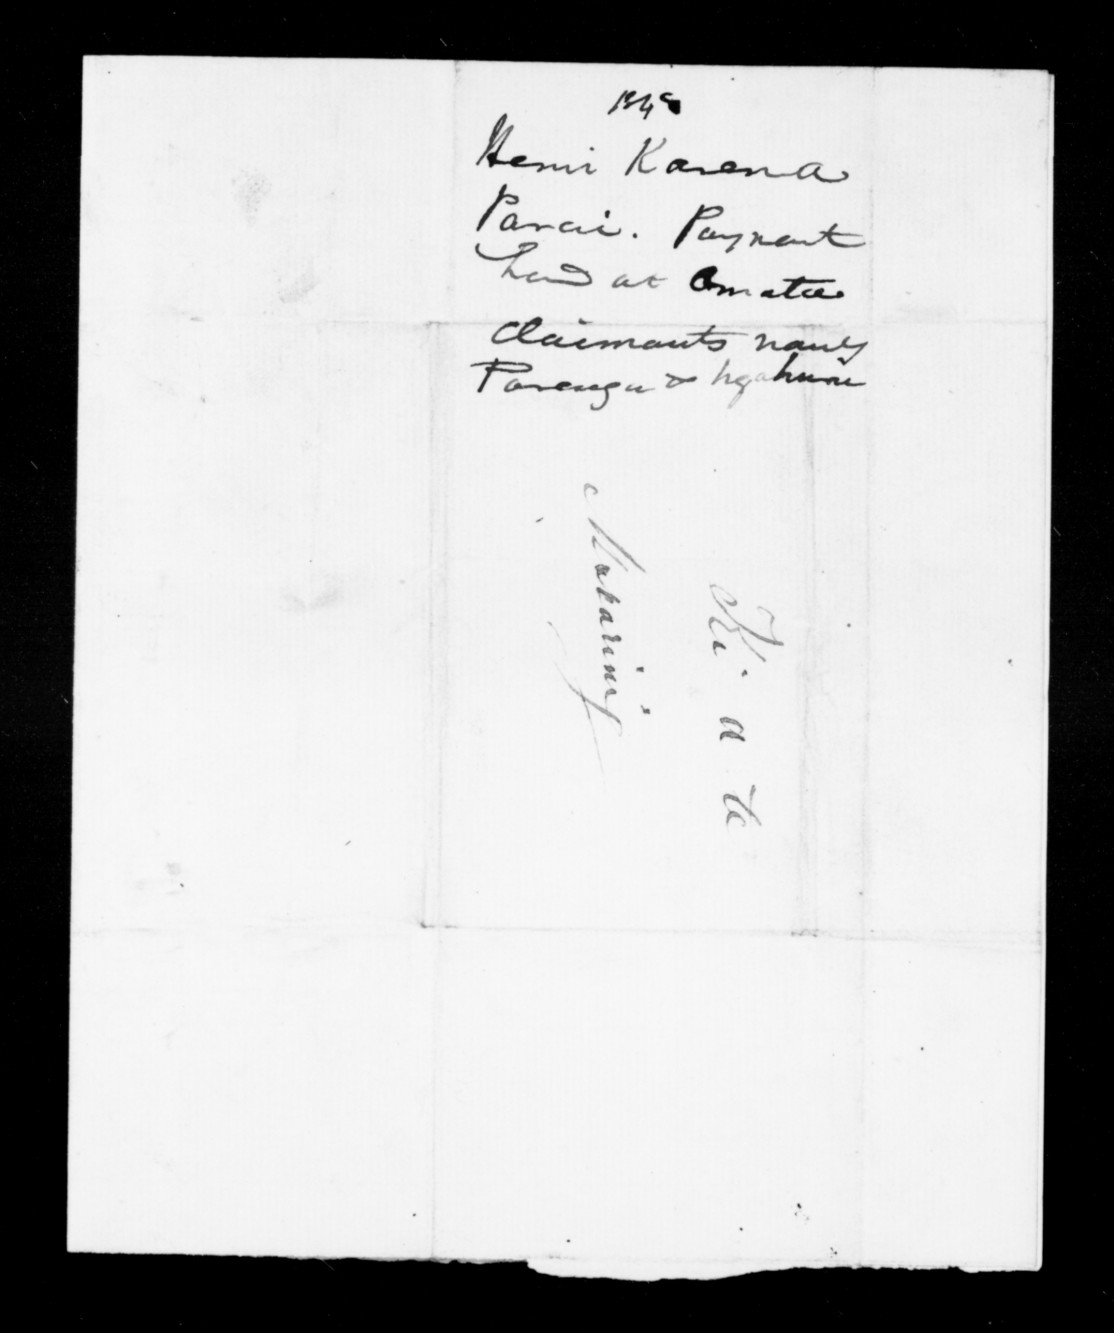 1848
Henri Karena
Parai. Payment
land at Omata
Claimants names
Parenga & Ngahuru
Ki a te
Makarini,